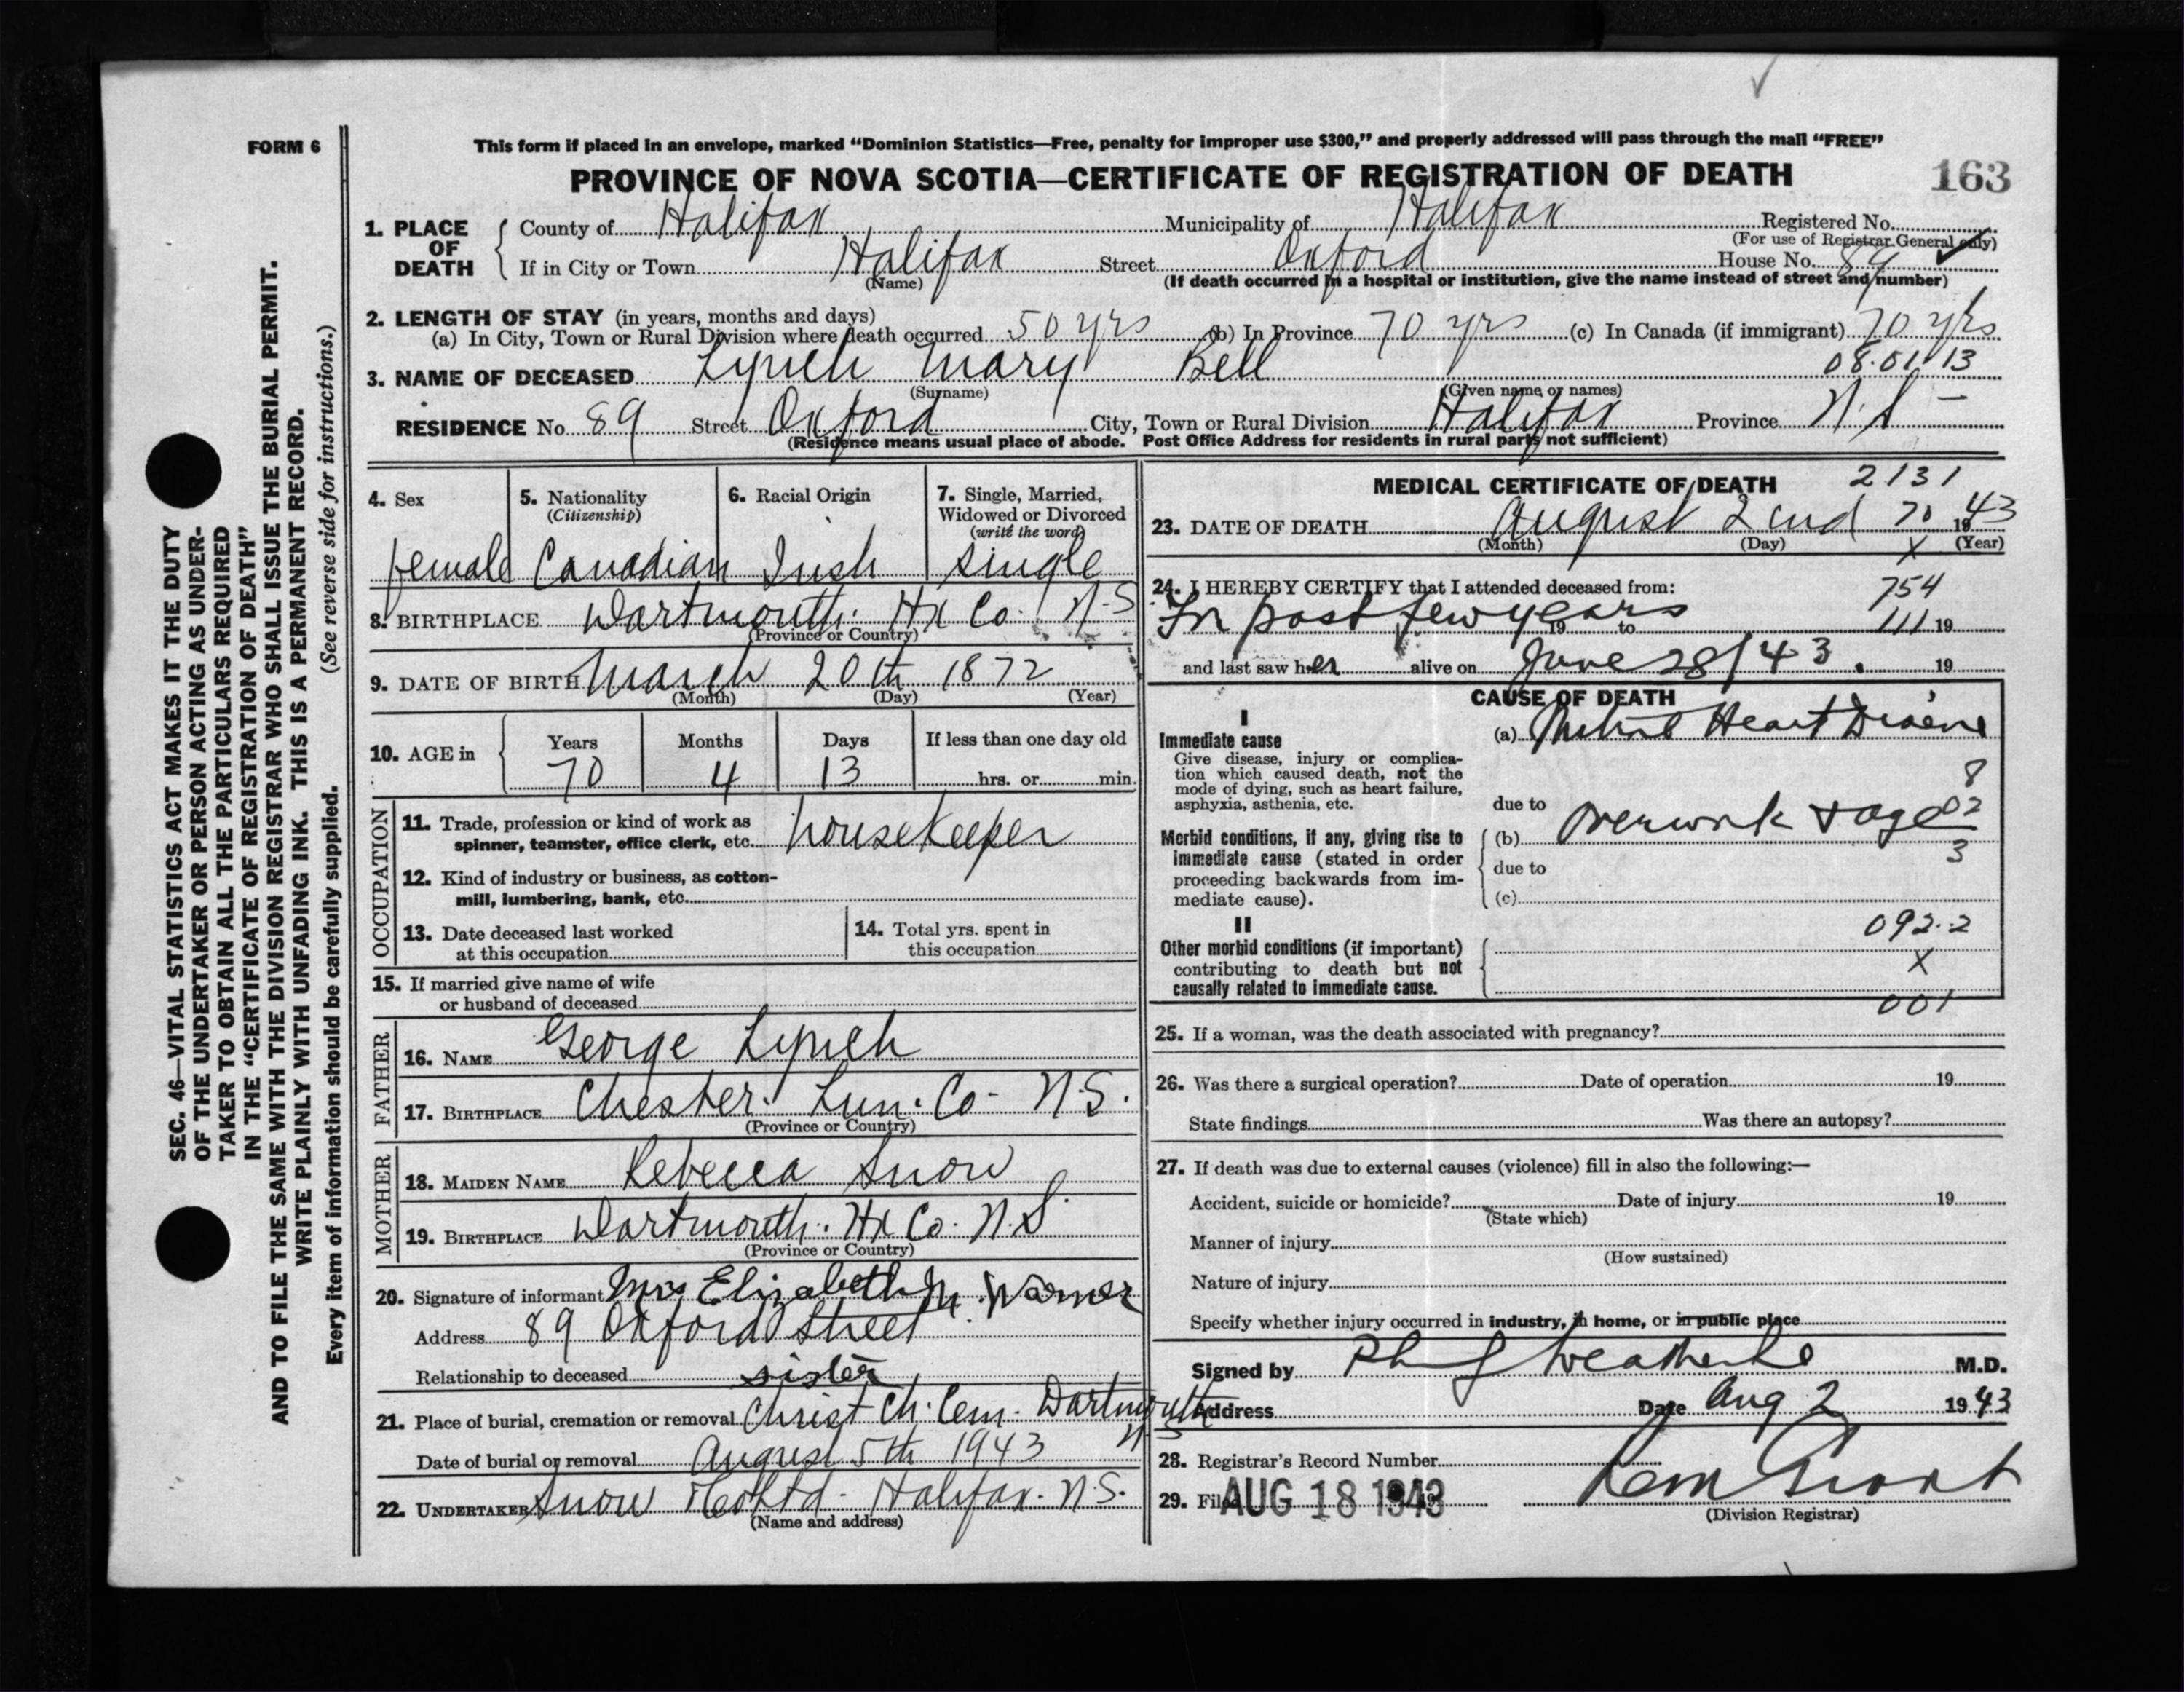 FORM 6
This form if placed in an envelope, marked “Dominion Statistics—Free, penalty for improper use $300,” and properly addressed will pass through the mail “FREE”
PROVINCE OF NOVA SCOTIA—CERTIFICATE OF REGISTRATION OF DEATH
163
1. PLACE OF DEATH
County of Halifax Municipality of Halifax Registered No.
(For use of Registrar General only)
If in City or Town Halifax Street Oxford House No. 89
(Name) (If death occurred in a hospital or institution, give the name instead of street and number)
2. LENGTH OF STAY (in years, months and days)
(a) In City, Town or Rural Division where death occurred 50 yrs (b) In Province 70 yrs (c) In Canada (if immigrant) 70 yrs
08.01 13
3. NAME OF DECEASED Lynch Mary Bell
(Surname) (Given name or names)
RESIDENCE No. 89 Street Oxford City, Town or Rural Division Halifax Province N.S –
(Residence means usual place of abode. Post Office Address for residents in rural parts not sufficient)
4. Sex
female
5. Nationality
(Citizenship)
Canadian
6. Racial Origin
Irish
7. Single, Married,
Widowed or Divorced
(write the word)
single
8. BIRTHPLACE Dartmouth. Hx Co. N.S
(Province or Country)
9. DATE OF BIRTH March 20th 1872
(Month) (Day) (Year)
10. AGE in
Years Months Days If less than one day old
70 4 13 hrs. or min.
OCCUPATION
11. Trade, profession or kind of work as
spinner, teamster, office clerk, etc. housekeeper
12. Kind of industry or business, as cotton-
mill, lumbering, bank, etc.
13. Date deceased last worked
at this occupation
14. Total yrs. spent in
this occupation
15. If married give name of wife
or husband of deceased
FATHER
16. NAME George Lynch
17. BIRTHPLACE Chester. Lun. Co- N.S.
(Province or Country)
MOTHER
18. MAIDEN NAME Rebecca Snow
19. BIRTHPLACE Dartmouth. Hx Co. N.S
(Province or Country)
20. Signature of informant Mrs Elizabeth M. Warner
Address 89 Oxford Street
Relationship to deceased sister
21. Place of burial, cremation or removal Christ Ch. Cem. Dartmouth
N S
Date of burial or removal August 5th 1943
22. UNDERTAKER Snow & Co Ltd- Halifax. N.S.
(Name and address)
MEDICAL CERTIFICATE OF DEATH 2131
23. DATE OF DEATH August 2nd 70 1943
(Month) (Day) X (Year)
24. I HEREBY CERTIFY that I attended deceased from: 754
For past few years 19 to 111 19
and last saw her alive on June 28/43. 19
CAUSE OF DEATH
I
Immediate cause
Give disease, injury or complica-
tion which caused death, not the
mode of dying, such as heart failure,
asphyxia, asthenia, etc.
(a) Mitral Heart Disease
8
due to
02
Morbid conditions, if any, giving rise to
immediate cause (stated in order
proceeding backwards from im-
mediate cause).
(b) overwork + age
3
due to
(c)
II
Other morbid conditions (if important)
contributing to death but not
causally related to immediate cause.
092.2
X
001
25. If a woman, was the death associated with pregnancy?
26. Was there a surgical operation? Date of operation 19
State findings Was there an autopsy?
27. If death was due to external causes (violence) fill in also the following:—
Accident, suicide or homicide? Date of injury 19
(State which)
Manner of injury
(How sustained)
Nature of injury
Specify whether injury occurred in industry, in home, or in public place
Signed by M.D.
Address Date Aug 2 1943
28. Registrar's Record Number
29. Filed AUG 18 1943 19
(Division Registrar)
SEC. 46—VITAL STATISTICS ACT MAKES IT THE DUTY
OF THE UNDERTAKER OR PERSON ACTING AS UNDER-
TAKER TO OBTAIN ALL THE PARTICULARS REQUIRED
IN THE “CERTIFICATE OF REGISTRATION OF DEATH”
AND TO FILE THE SAME WITH THE DIVISION REGISTRAR WHO SHALL ISSUE THE BURIAL PERMIT.
WRITE PLAINLY WITH UNFADING INK. THIS IS A PERMANENT RECORD.
Every item of information should be carefully supplied. (See reverse side for instructions.)